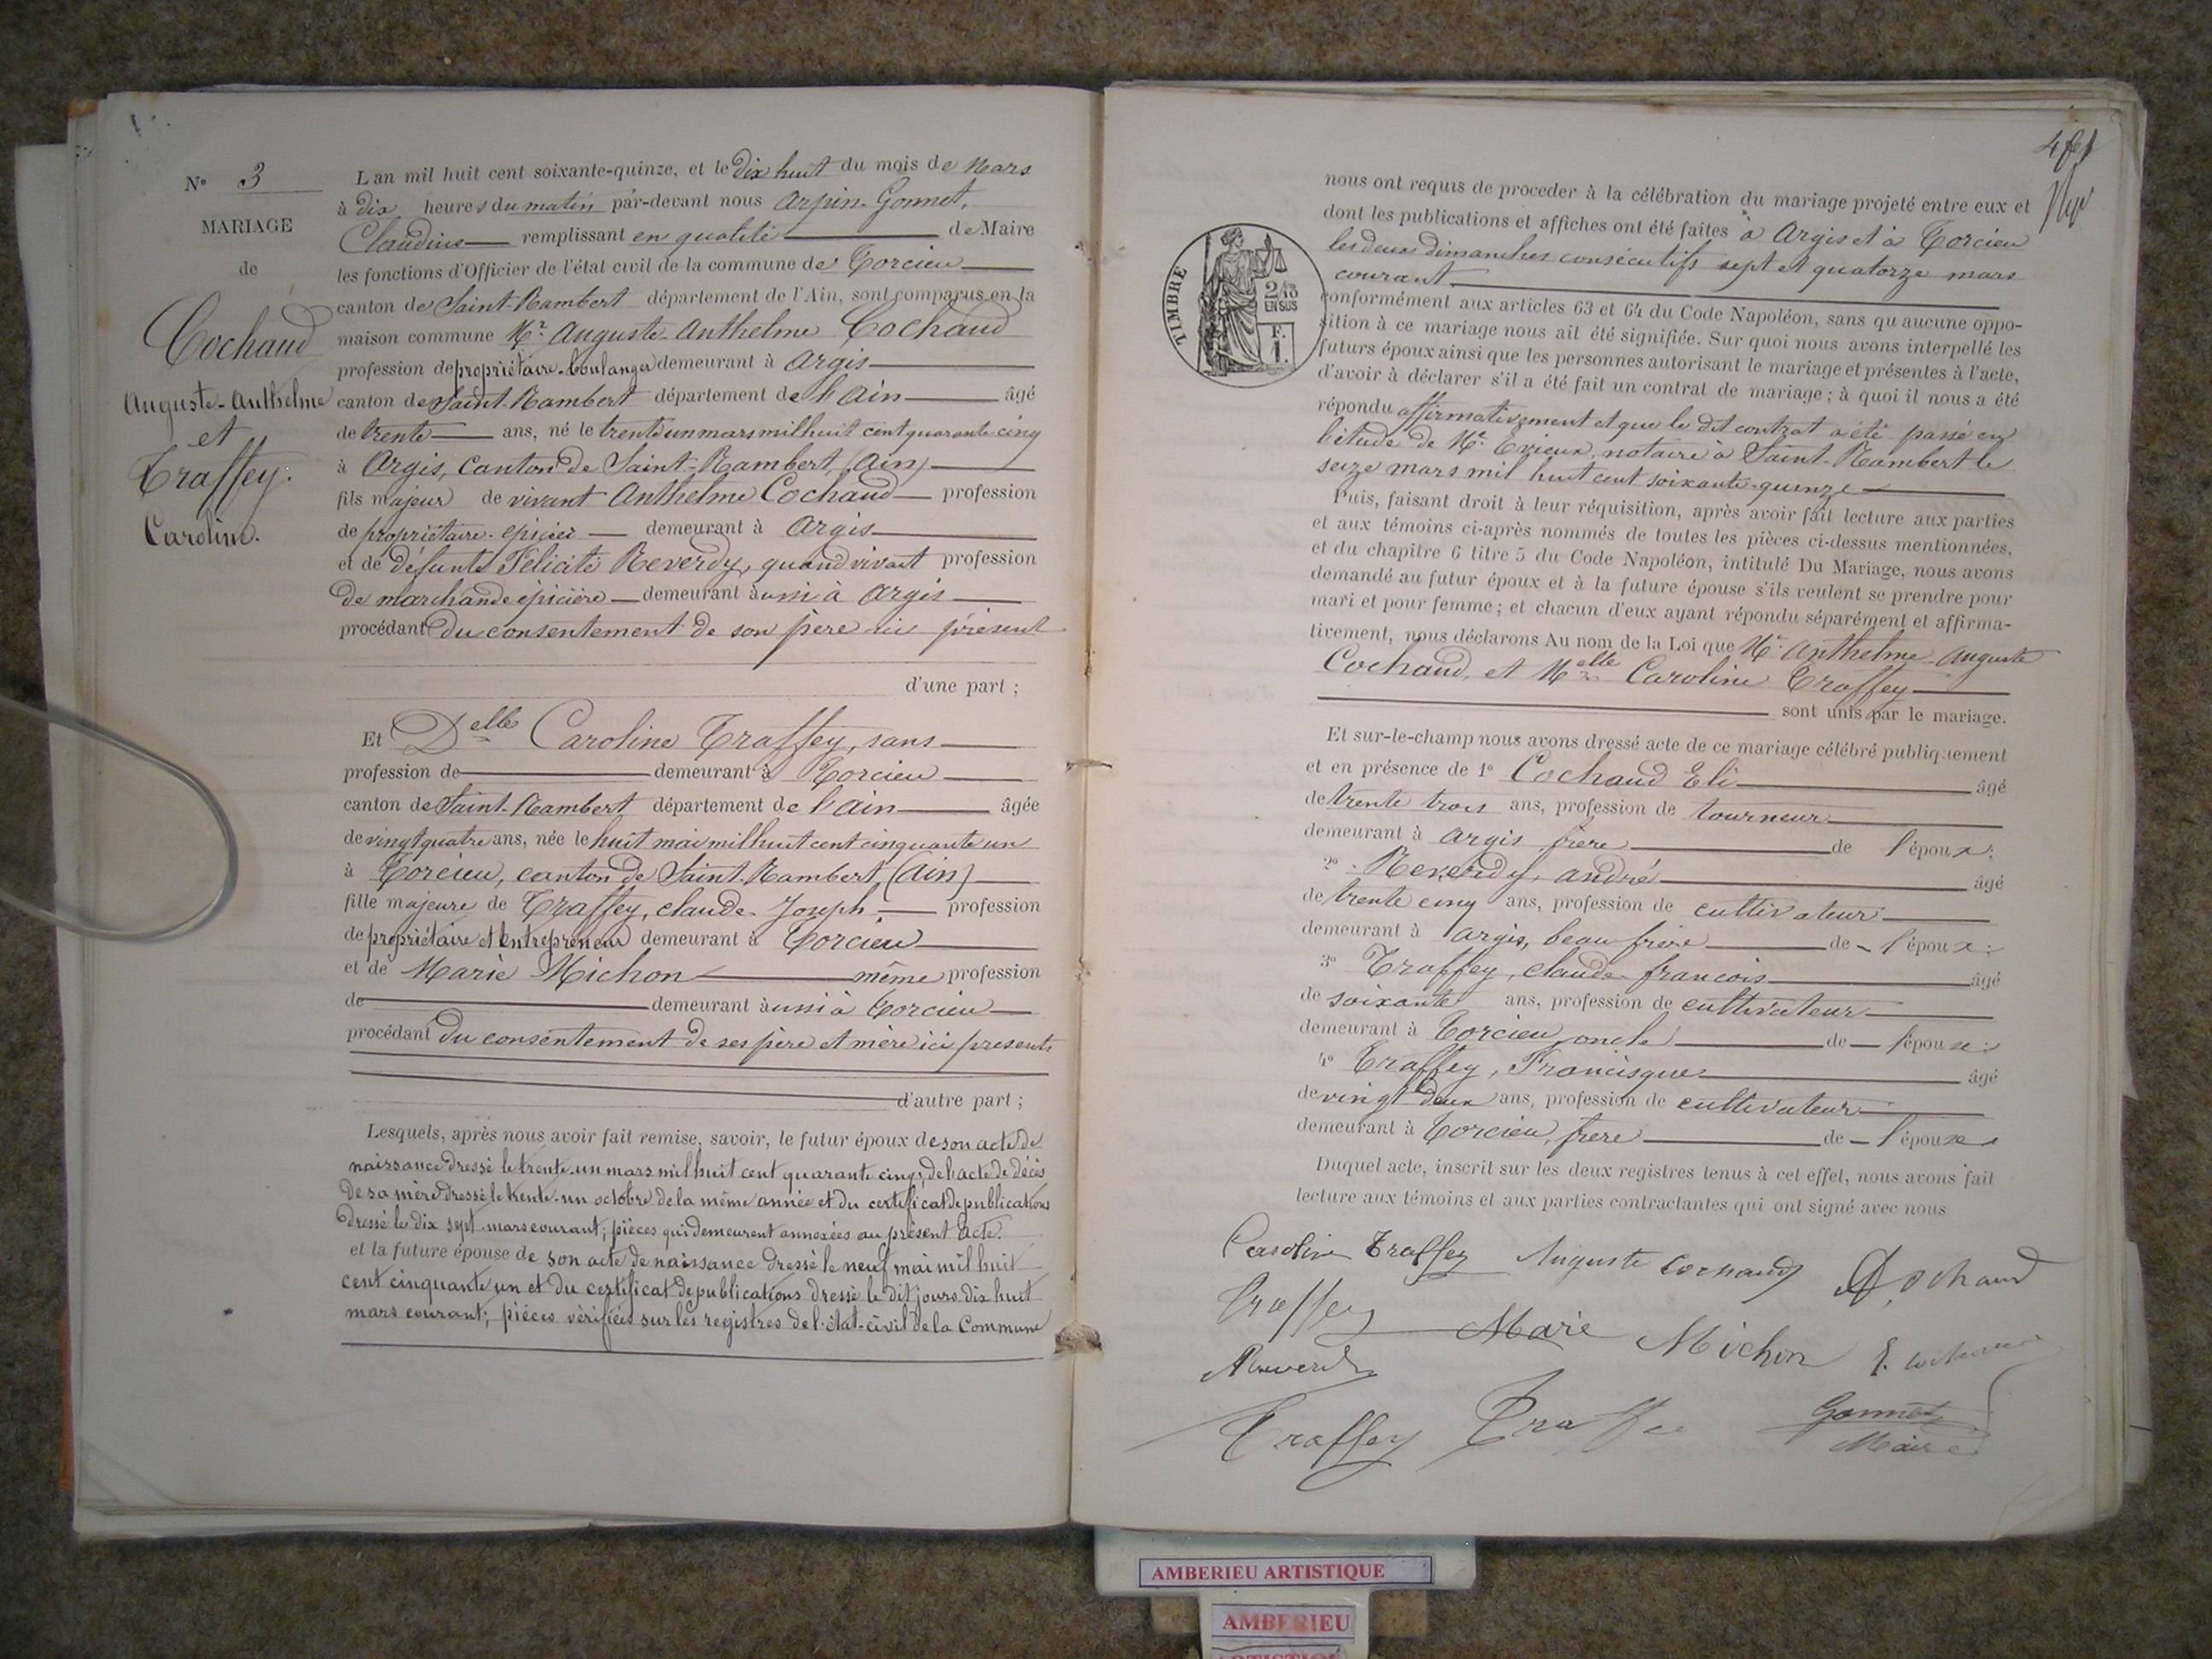 N° 3
MARIAGE
de
Cochaud
Auguste-Anthelme
et
Traffey.
Caroline.
L'an mil huit cent soixante-quinze, et le dix huit du mois de Mars
à dix heures du matin par-devant nous Arpin-Gonnet,
Claudius remplissant en qualité de Maire
les fonctions d'Officier de l'état civil de la commune de Torcieu
canton de Saint-Rambert département de l'Ain, sont comparus en la
maison commune Mr. Auguste-Anthelme Cochaud
profession de propriétaire-boulanger demeurant à Argis
canton de Saint-Rambert département de l'Ain âgé
de trente ans, né le trente un mars mil huit cent quarante cinq
à Argis, Canton de Saint-Rambert (Ain)
fils majeur de vivant Anthelme Cochaud profession
de propriétaire-épicier demeurant à Argis
et de défunte Félicité Reverdy, quand vivait profession
de marchande épicière demeurant aussi à Argis
procédant du consentement de son père ici présent
d'une part ;
Et Delle Caroline Traffey, sans
profession de demeurant à Torcieu
canton de Saint-Rambert département de l'Ain âgée
de vingt quatre ans, née le huit mai mil huit cent cinquante un
à Torcieu, canton de Saint-Rambert, (Ain)
fille majeure de Traffey, claude-Joseph, profession
de propriétaire et entrepreneur demeurant à Torcieu
et de Marie Michon même profession
de demeurant aussi à Torcieu
procédant du consentement de ses père et mère ici présents
d'autre part ;
Lesquels, après nous avoir fait remise, savoir, le futur époux de son acte de
naissance dressé le trente-un mars mil huit cent quarante cinq; de l'acte de décès
de sa mère dressé le trente-un octobre de la même année et du certificat de publications
dressé le dix sept mars courant; pièces qui demeurent annexées au présent acte.
et la future épouse de son acte de naissance dressé le neuf mai mil huit
cent cinquante un et du certificat de publications dressé le dit jours dix huit
mars courant; pièces vérifiées sur les registres de l'état-civil de la Commune
nous ont requis de proceder à la célébration du mariage projeté entre eux et
dont les publications et affiches ont été faites à Argis et à Torcieu
les deux dimanches consécutifs sept et quatorze mars
courant.
TIMBRE
2/10
EN SUS
F.
1.
conformément aux articles 63 et 64 du Code Napoléon, sans qu'aucune oppo-
sition à ce mariage nous ait été signifiée. Sur quoi nous avons interpellé les
futurs époux ainsi que les personnes autorisant le mariage et présentes à l'acte,
d'avoir à déclarer s'il a été fait un contrat de mariage ; à quoi il nous a été
répondu affirmativement et que le dit contrat a été passé en
l'étude de Me. Evieux, notaire à Saint-Rambert le
seize mars mil huit cent soixante-quinze
Puis, faisant droit à leur réquisition, après avoir fait lecture aux parties
et aux témoins ci-après nommés de toutes les pièces ci-dessus mentionnées,
et du chapitre 6 titre 5 du Code Napoléon, intitulé Du Mariage, nous avons
demandé au futur époux et à la future épouse s'ils veulent se prendre pour
mari et pour femme ; et chacun d'eux ayant répondu séparément et affirma-
tivement, nous déclarons Au nom de la Loi que Mr. Anthelme-Auguste
Cochaud, et Melle Caroline Traffey
sont unis par le mariage.
Et sur-le-champ nous avons dressé acte de ce mariage célébré publiquement
et en présence de 1° Cochaud Eli âgé
de trente trois ans, profession de tourneur
demeurant à Argis frère de l'époux;
2° Reverdy, andré âgé
de trente cinq ans, profession de cultivateur
demeurant à Argis, beau frère de l'époux;
3° Traffey, claude-francois âgé
de soixante ans, profession de cultivateur
demeurant à Torcieu, oncle de l'épouse;
4° Traffey, Francisque âgé
de vingt deux ans, profession de cultivateur
demeurant à Torcieu, frère de l'épouse
Duquel acte, inscrit sur les deux registres tenus à cet effet, nous avons fait
lecture aux témoins et aux parties contractantes qui ont signé avec nous
Caroline Traffey Auguste Cochaud A Cochaud
Traffey Marie Michon E. Cochaud
Traffey Gonnet
Maire
AMBERIEU ARTISTIQUE
AMBERIEU
ARTISTIQUE